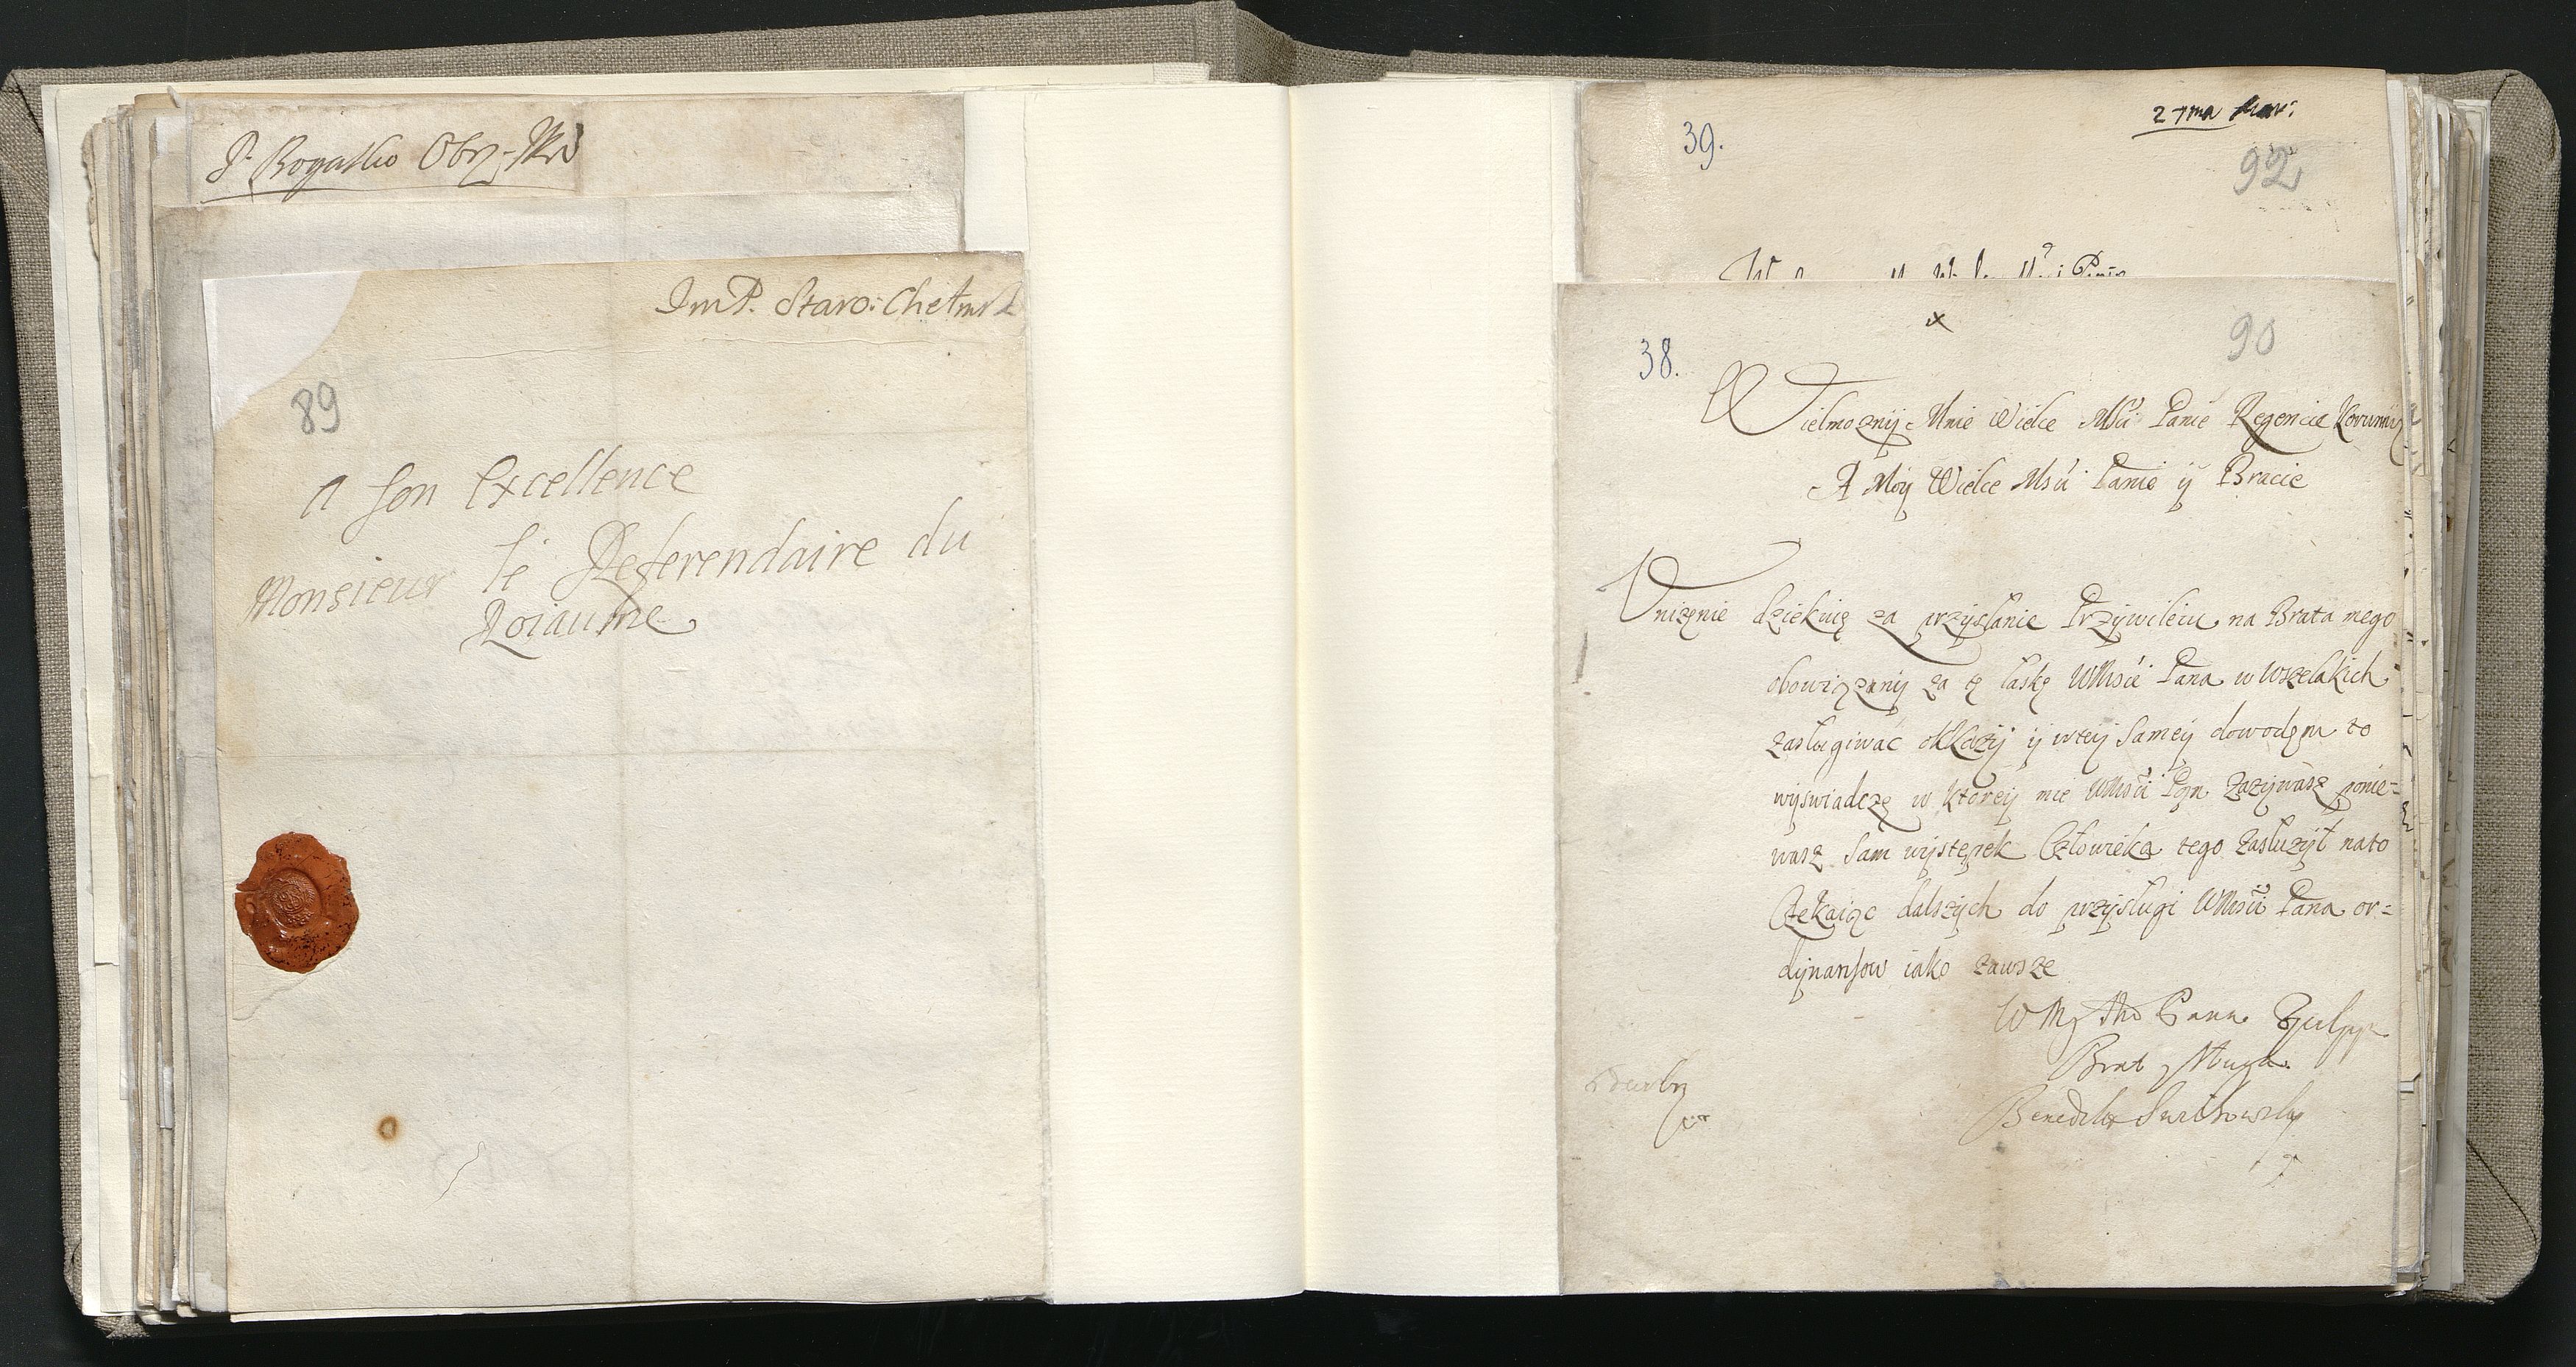 P. Rogatko Obrz-Ski
JmP. Staro: Chełmsk
89
A son Excellence
Monsieur le Referendaire du
Roiaume
39.
27ma Mar:
92
x
38.
90
Wielmoznÿ Mnie Wielce Mśći Panie Regencie Koronnÿ
A Moÿ Wielce Mśći Panie ÿ Bracie
Unizęnie dziękuię za przÿsłanie Przÿwileiu na Brata mego
obowiązanÿ za tę łaskę WMśći Pana w wszelakich
zasługiwać okkazÿ ÿ wteÿ sameÿ dowodęm to
wÿswiadczę w ktoreÿ mie WMśći Pan zazÿwasz ponie=
wasz sam wÿstępek Człowieka tego zasłuzÿł nato
Czekaiąc dalszÿch do przÿsługi WMśći Pana or=
dÿnansow iako zawsze
Pana
Brat y Sługa